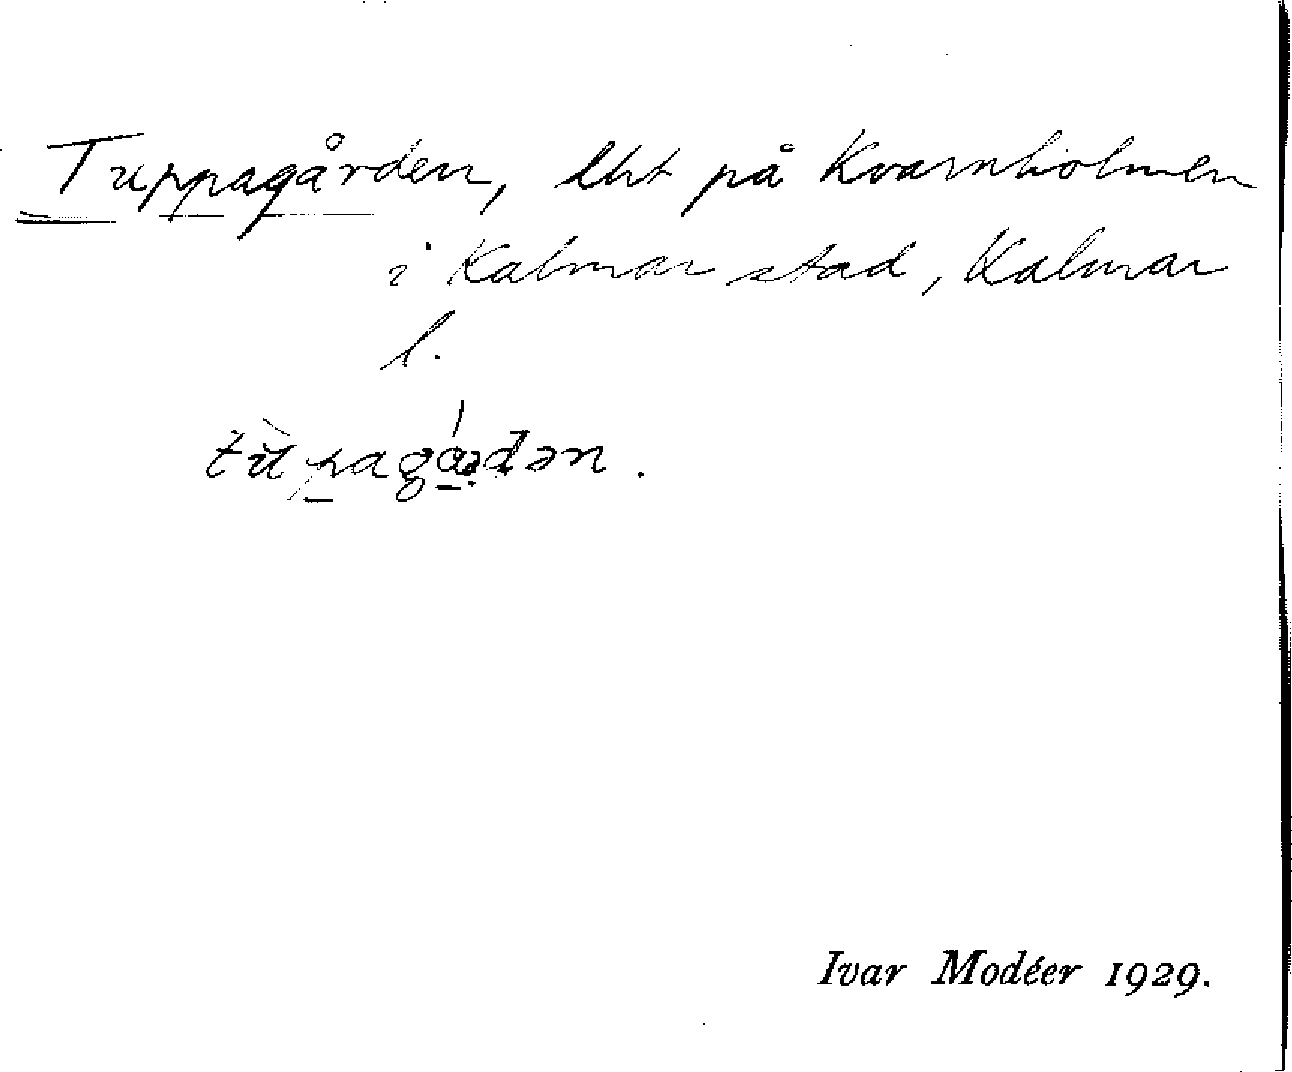 Tuppagården, lht på Kvarnholmen
i Kalmar stad, Kalmar
l.
Ivar Modéer 1929.